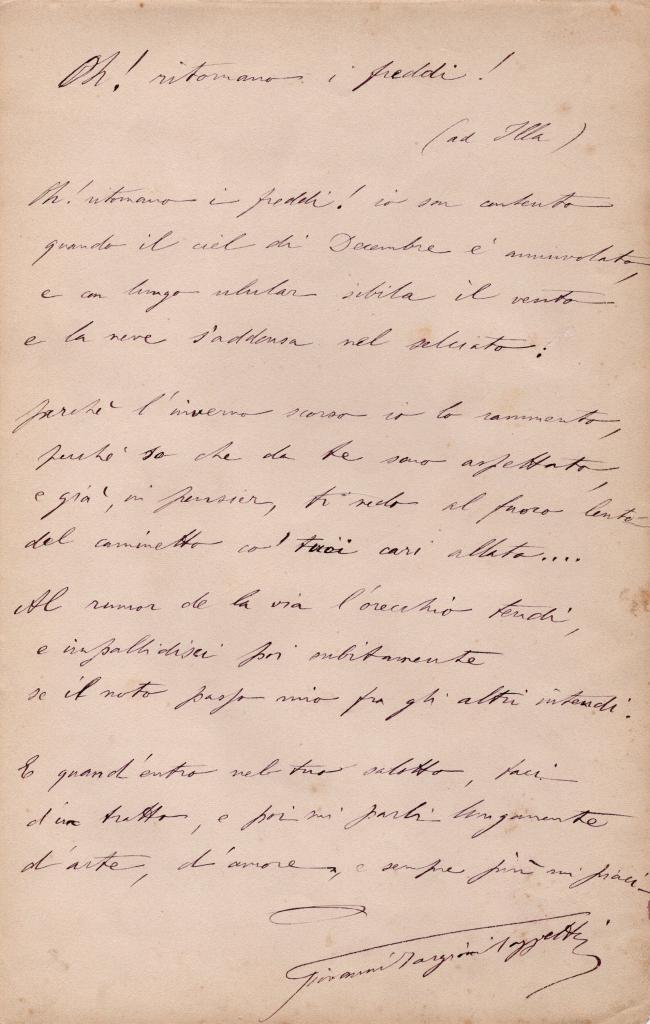 Oh! ritornano i freddi!
(ad Illa)
Oh! ritornano i freddi! io son contento
quando il ciel di Decembre è annuvolato,
e con lungo ulular sibila il vento
e la neve s'addensa nel selciato:
perchè l'inverno scorso io lo rammento,
perchè so che da te sono aspettato,
e già, in pensier, ti vedo al fuoco lento
del caminetto co' tuoi cari allato....
Al rumor de la via l'orecchio tendi,
e impallidisci poi subitamente
se il noto passo mio fra gli altri intendi.
E quand'entro nel tuo salotto, taci
d'un tratto, e poi mi parli lungamente
d'arte, d'amore, e sempre più mi piaci
Giovanni Targioni Tozzetti